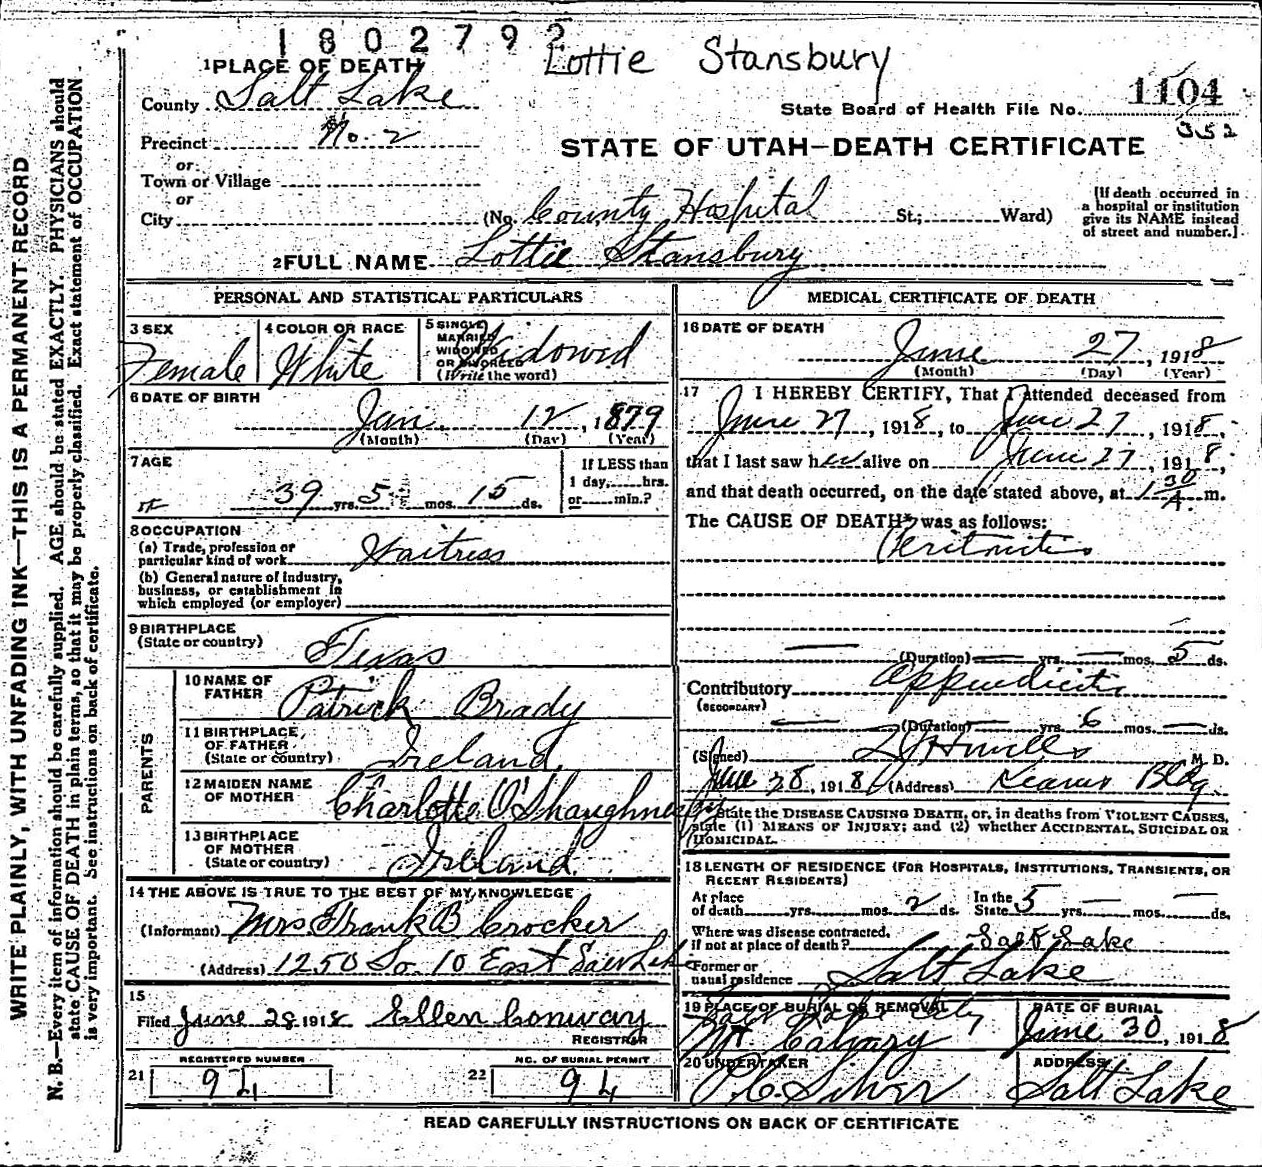 1802792
Lottie Stansbury
1 PLACE OF DEATH
County Salt Lake
State Board of Health File No. 1104
352
Precinct No. 2
STATE OF UTAH—DEATH CERTIFICATE
or
Town or Village
or
City (No. County Hospital St.; Ward)
[If death occurred in
a hospital or institution
give its NAME instead
of street and number.]
2 FULL NAME Lottie Stansbury
PERSONAL AND STATISTICAL PARTICULARS
3 SEX
Female
4 COLOR OR RACE
White
5 SINGLE
MARRIED
WIDOWED
OR DIVORCED
(Write the word)
Widowed
6 DATE OF BIRTH
Jan. 12, 1879
(Month) (Day) (Year)
7 AGE
39 yrs. 5 mos. 15 ds.
If LESS than
1 day, hrs.
or min.?
8 OCCUPATION
(a) Trade, profession or
particular kind of work Waitress
(b) General nature of Industry,
business, or establishment in
which employed (or employer)
9 BIRTHPLACE
(State or country) Texas
PARENTS
10 NAME OF
FATHER Patrick Brady
11 BIRTHPLACE
OF FATHER
(State or country) Ireland
12 MAIDEN NAME
OF MOTHER Charlotte O'Shaughnessy
13 BIRTHPLACE
OF MOTHER
(State or country) Ireland
14 THE ABOVE IS TRUE TO THE BEST OF MY KNOWLEDGE
(Informant) Mrs Frank B Crocker
(Address) 1250 So. 10 East Salt Lake
15
Filed June 28 1918 Ellen Conway
REGISTRAR
REGISTERED NUMBER
21 94
NO. OF BURIAL PERMIT
22 94
MEDICAL CERTIFICATE OF DEATH
16 DATE OF DEATH
June 27, 1918
(Month) (Day) (Year)
17 I HEREBY CERTIFY, That I attended deceased from
June 27, 1918, to June 27, 1918,
that I last saw her alive on June 27, 1918,
and that death occurred, on the date stated above, at 1 30 A. m.
The CAUSE OF DEATH* was as follows:
Peritonitis
(Duration) yrs. mos. 5 ds.
Contributory Appendicitis
(SECONDARY)
(Duration) yrs. 6 mos. ds.
(Signed) M. D.
June 28, 1918 (Address) Kearns Bldg
*State the DISEASE CAUSING DEATH, or, in deaths from VIOLENT CAUSES,
state (1) MEANS OF INJURY; and (2) whether ACCIDENTAL, SUICIDAL OR
HOMICIDAL.
18 LENGTH OF RESIDENCE (FOR HOSPITALS, INSTITUTIONS, TRANSIENTS, OR
RECENT RESIDENTS)
At place
of death yrs. mos. 2 ds.
In the
State 5 yrs. mos. ds.
Where was disease contracted,
if not at place of death? Salt Lake
Former or
usual residence Salt Lake
19 PLACE OF BURIAL OR REMOVAL
Salt Lake City
Mt Calvary
DATE OF BURIAL
June 30, 1918
20 UNDERTAKER
ADDRESS
Salt Lake
READ CAREFULLY INSTRUCTIONS ON BACK OF CERTIFICATE
WRITE PLAINLY, WITH UNFADING INK—THIS IS A PERMANENT RECORD
N. B.—Every item of information should be carefully supplied. AGE should be stated EXACTLY. PHYSICIANS should
state CAUSE OF DEATH in plain terms, so that it may be properly classified. Exact statement of OCCUPATION
is very important. See instructions on back of certificate.